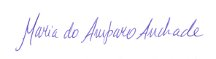 Maria do Amparo Andrade